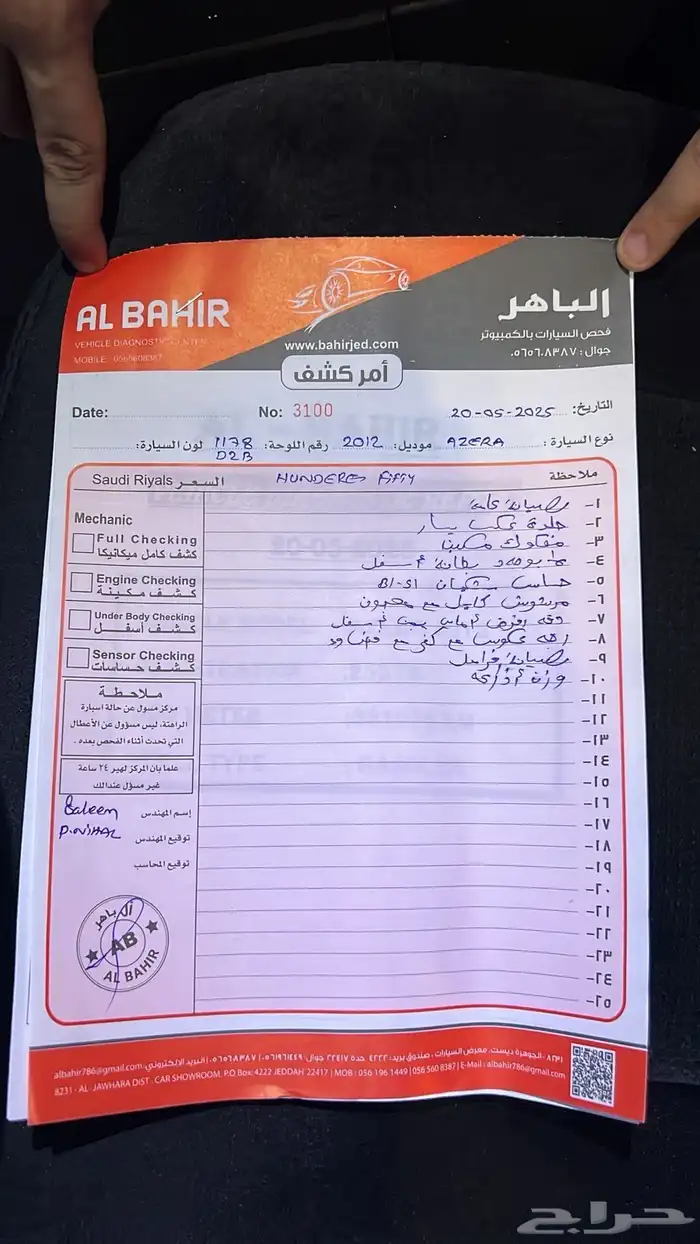 AL BAHIR
VEHICLE DIAGNOSTIC CENTER
MOBILE: 0565608387
www.bahirjed.com
الباهر
فحص السيارات بالكمبيوتر
جوال: ٠٥٦٥٦٠٨٣٨٧
أمر كشف
Date: No: 3100 20-05-2025 التاريخ:
نوع السيارة: AZERA موديل: 2012 رقم اللوحة: 1178 لون السيارة:
D2B
Saudi Riyals السعر HUNDERES FIFTY ملاحظة
Mechanic
Full Checking
كشف كامل ميكانيكا
Engine Checking
كشف مكينة
Under Body Checking
كشف أسفل
Sensor Checking
كشف حساسات
١- صيانة عامة
٢- جلدة عكس يسار
٣- مفكوك مكينة
٤- أسفل
٥- حساس شكمان B1-S1
٦- مرشوش كامل مع معجون
٧-
٨-
٩- صيانة فرامل
١٠- وزن أذرعة
١١-
١٢-
١٣-
١٤-
١٥-
١٦-
١٧-
١٨-
١٩-
٢٠-
٢١-
٢٢-
٢٣-
٢٤-
٢٥-
ملاحظة
مركز مسول عن حالة اسيارة
الراهنة، ليس مسؤول عن الأعطال
التي تحدث أثناء الفحص بعده.
علما بان المركز لهير ٢٤ ساعة
غير مسؤل عندالك
Saleem إسم المهندس
P.NIHAL توقيع المهندس
توقيع المحاسب
الباهر
AB
AL BAHIR
٨٢٣١ - الجوهرة ديست. معرض السيارات، صندوق بريد: ٤٢٢٢ جدة ٢٢٤١٧ جوال: ٠٥٦١٩٦١٤٤٩ | ٠٥٦٥٦٠٨٣٨٧ | البريد الإلكتروني: albahir786@gmail.com
8231 - AL-JAWHARA DIST - CAR SHOWROOM. P.O Box: 4222 JEDDAH 22417 | MOB : 056 196 1449 | 056 560 8387 | E-Mail : albahir786@gmail.com
حراج